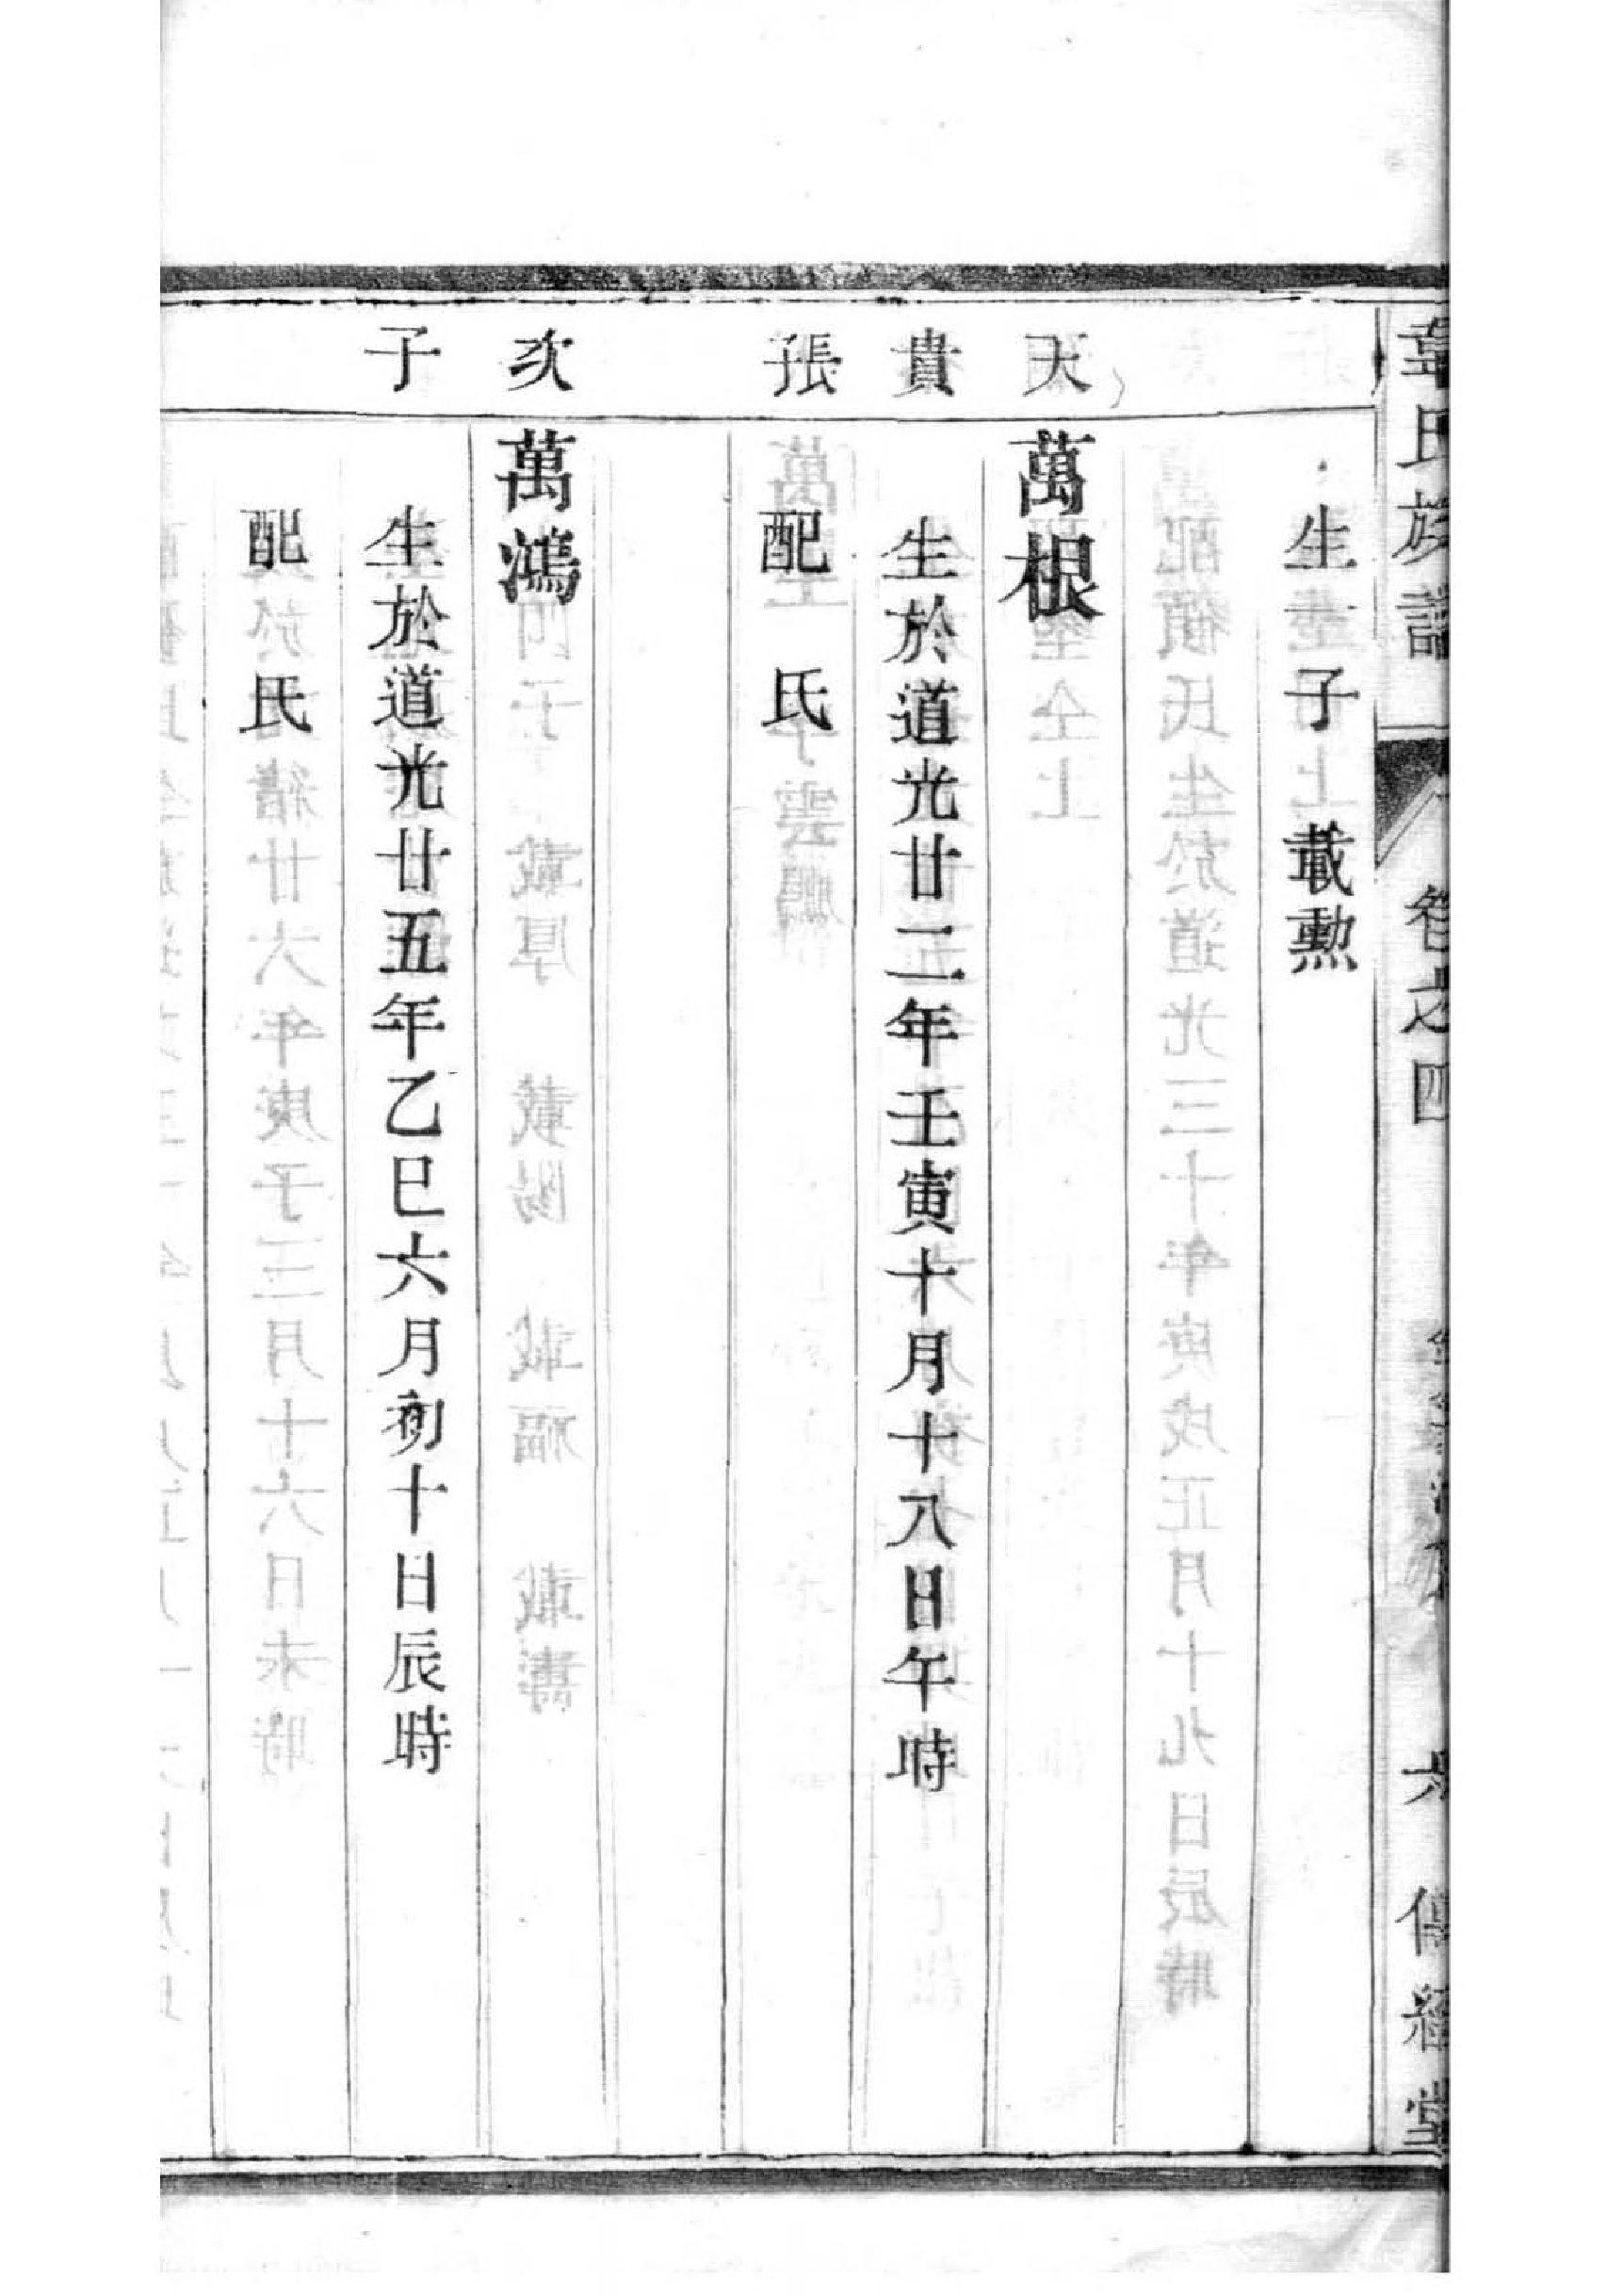 韋氏族譜
卷之四
傳經堂
生子 載勲
天
萬根
貴
生於道光廿二年壬寅十月十八日午時
張
配 氏
次
萬鴻
子
生於道光廿五年乙巳六月初十日辰時
配 氏